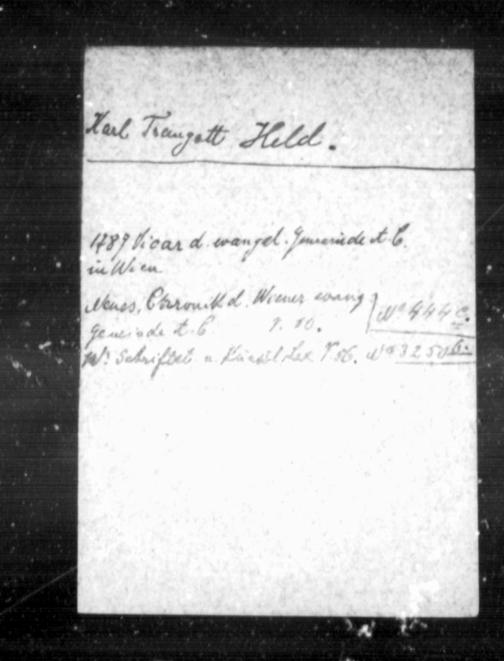 Karl Traugott Held.
1787 Vicar d. evangel. Gemeinde A. C.
in Wien
Neues, Chronik d. Wiener evang
Gemeinde A. C. p. 50. No 444 C.
W. Schriftst. u. Künstl. Lex p 56. No 3250 B.